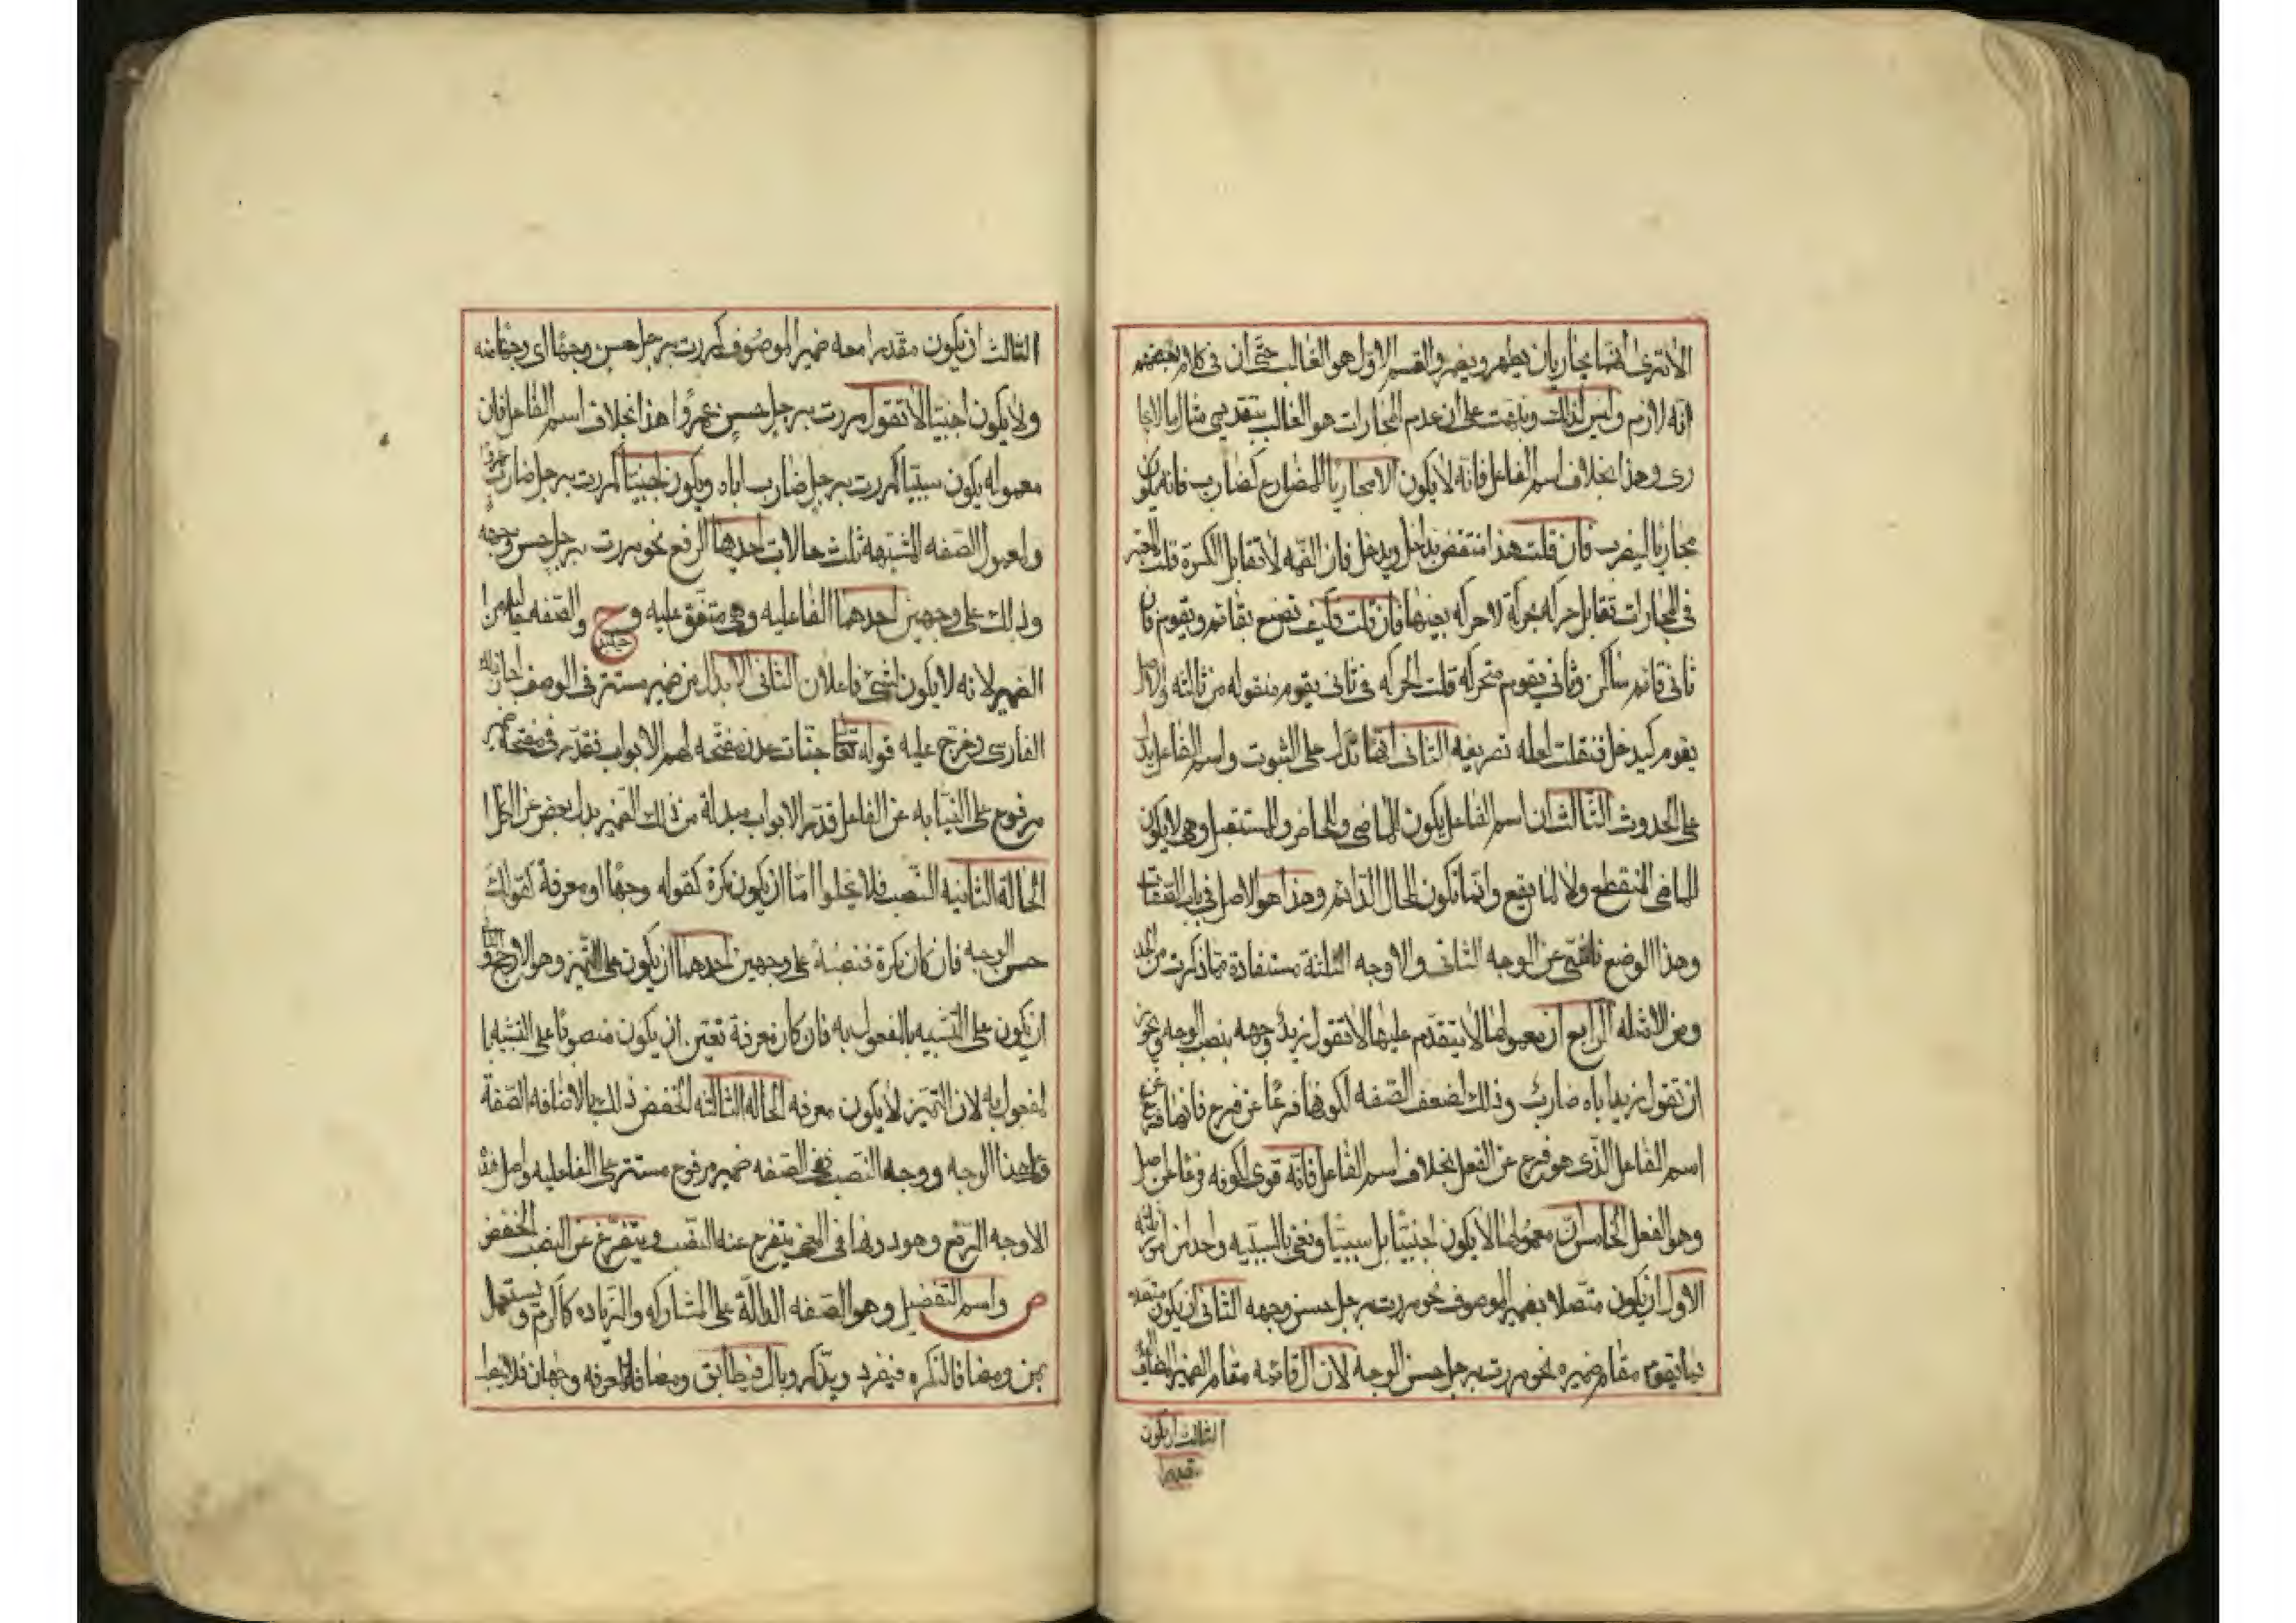 الا ترى انهما مجاريان ليطهر ويضمر والقسم الاول هو الغالب حتى ان في كلام بعضهم
انه لازم وليس كذلك ونبهت على ان عدم المجارات هو الغالب بتقديمي مثال ما لا يجا
رى وهذا بخلاف اسم الفاعل فانه لا يكون الا مجاريا للمضارع كضارب فانه يكون
مجاريا ليضرب فان قلت هذا منتقض بداخل ويدخل فان الضمه لا تقابل الكسرة قلت المعتبر
في المجارات تقابل حركه بحركة لا حركه بعينها فان قلت كيف تصنع بقائم ويقوم فان
ثاني قائم ساكن وثاني يقوم متحركه قلت الحركه في ثاني يقوم منقوله من ثالثه والاصل
يقوم كيدخل فنقلت لعله تصريفيه الثاني انها تدل على الثبوت واسم الفاعل يدل
على الحدوث الثالث ان اسم الفاعل يكون للماضي والحاضر والمستقبل وهي لا يكون
للماضي المنقطع ولا لما يقع وانما تكون للحال الدائم وهذا هو الاصل في باب الصفات
وهذا الوضع ناشي عن الوجه الثاني والاوجه الثلثة مستفادة مما ذكرت من الحد
ومن الامثله الرابع ان معمولها لا يتقدم عليها لا تقول زيد وجهه بنصب الوجه ويجوز
ان تقول زيد اباه ضارب وذلك لضعف الصفه لكونها فرعا عن فرع فانها فرع عن
اسم الفاعل الذي هو فرع عن الفعل بخلاف اسم الفاعل فانه قوي لكونه فرعا عن اصل
وهو الفعل الخامس ان معمولها لا يكون اجنبيا بل سببيا ونعني بالسببيه واحد من امور ثلثه
الاول ان يكون متصلا بضمير الموصوف نحو مررت برجل حسن وجهه الثاني ان يكون متصلا
بما يقوم مقام ضميره نحو مررت برجل حسن الوجه لان ال قائمه مقام الضمير المضاف اليه
الثالث ان يكون
مقدرا
الثالث ان يكون مقدرا معه ضمير الموصوف كمررت برجل حسن وجها اي وجها منه
ولا يكون اجنبيا لا تقول مررت برجل حسن عمروا هذا بخلاف اسم الفاعل فان
معموله يكون سببيا كمررت برجل ضارب اباه ويكون اجنبيا كمررت برجل ضارب عمروا
ولمعمول الصفه المشبهه ثلث حالات احدها الرفع نحو مررت برجل حسن وجهه
وذلك على وجهين احدهما الفاعليه وهي متفق عليه وح والصفه خاليه من
حينئذ
الضمير لانه لا يكون لشيء فاعلان الثاني الابدال من ضمير مستتر في الوصف اجازه
الفارسي وخرج عليه قوله تعا جنات عدن مفتحه لهم الابواب فقدر في مفتحه ضمير
مرفوع على النيابه عن الفاعل قدر الابواب مبدلة من ذلك الضمير بدل بعض من الكل
الحالة الثانيه النصب فلا يخلوا اما ان يكون نكرة كقوله وجها او معرفة كقولك
حسن الوجه فان كان نكرة فنصبه على وجهين احدهما ان يكون على التميز وهو الارجح والثاني
ان يكون على التشبيه بالمفعول به فان كان معرفة تعين ان يكون منصوبا على التشبيه با
لمفعول به لان التميز لا يكون معرفه الحاله الثالثه الخفض وذلك بالاضافه الصفة
وعلى هذا الوجه ووجه النصب ففي الصفه ضمير مرفوع مستتر على الفاعليه واصل هذه
الاوجه الرفع وهو دونها في المعنى يتفرع عنه النصب ويتفرع عن النصب الخفض
ص واسم التفضيل وهو الصفه الدالة على المشاركه والزياده كاكرم ويستعمل
بمن ومضافا لنكره فيفرد ويذكر وبال فيطابق ومضافا لمعرفه وجهان فلا ينصب